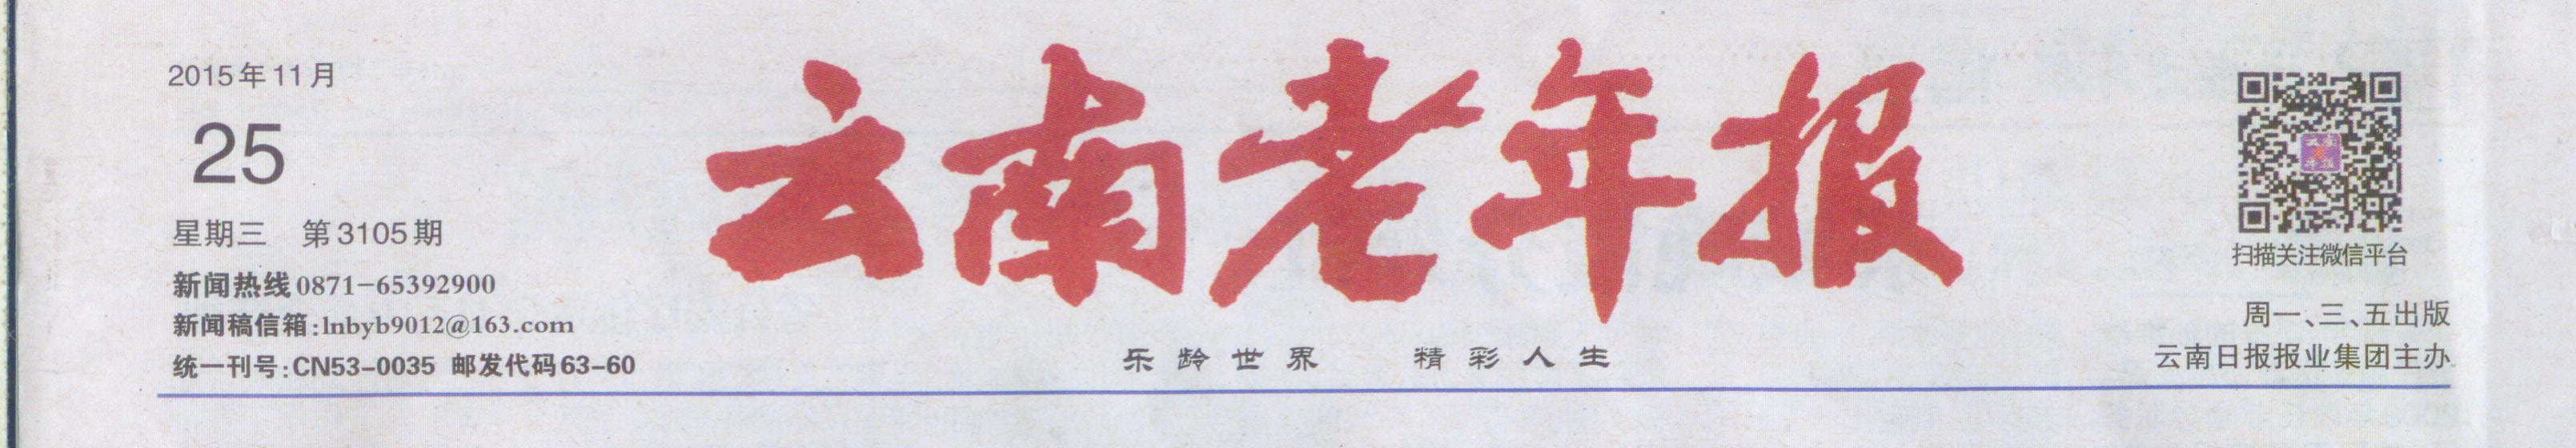 2015年11月
25
星期三 第3105期
新闻热线0871-65392900
新闻稿信箱:lnbyb9012@163.com
统一刊号:CN53-0035 邮发代码63-60
云南老年报
乐龄世界 精彩人生
扫描关注微信平台
周一、三、五出版
云南日报报业集团主办